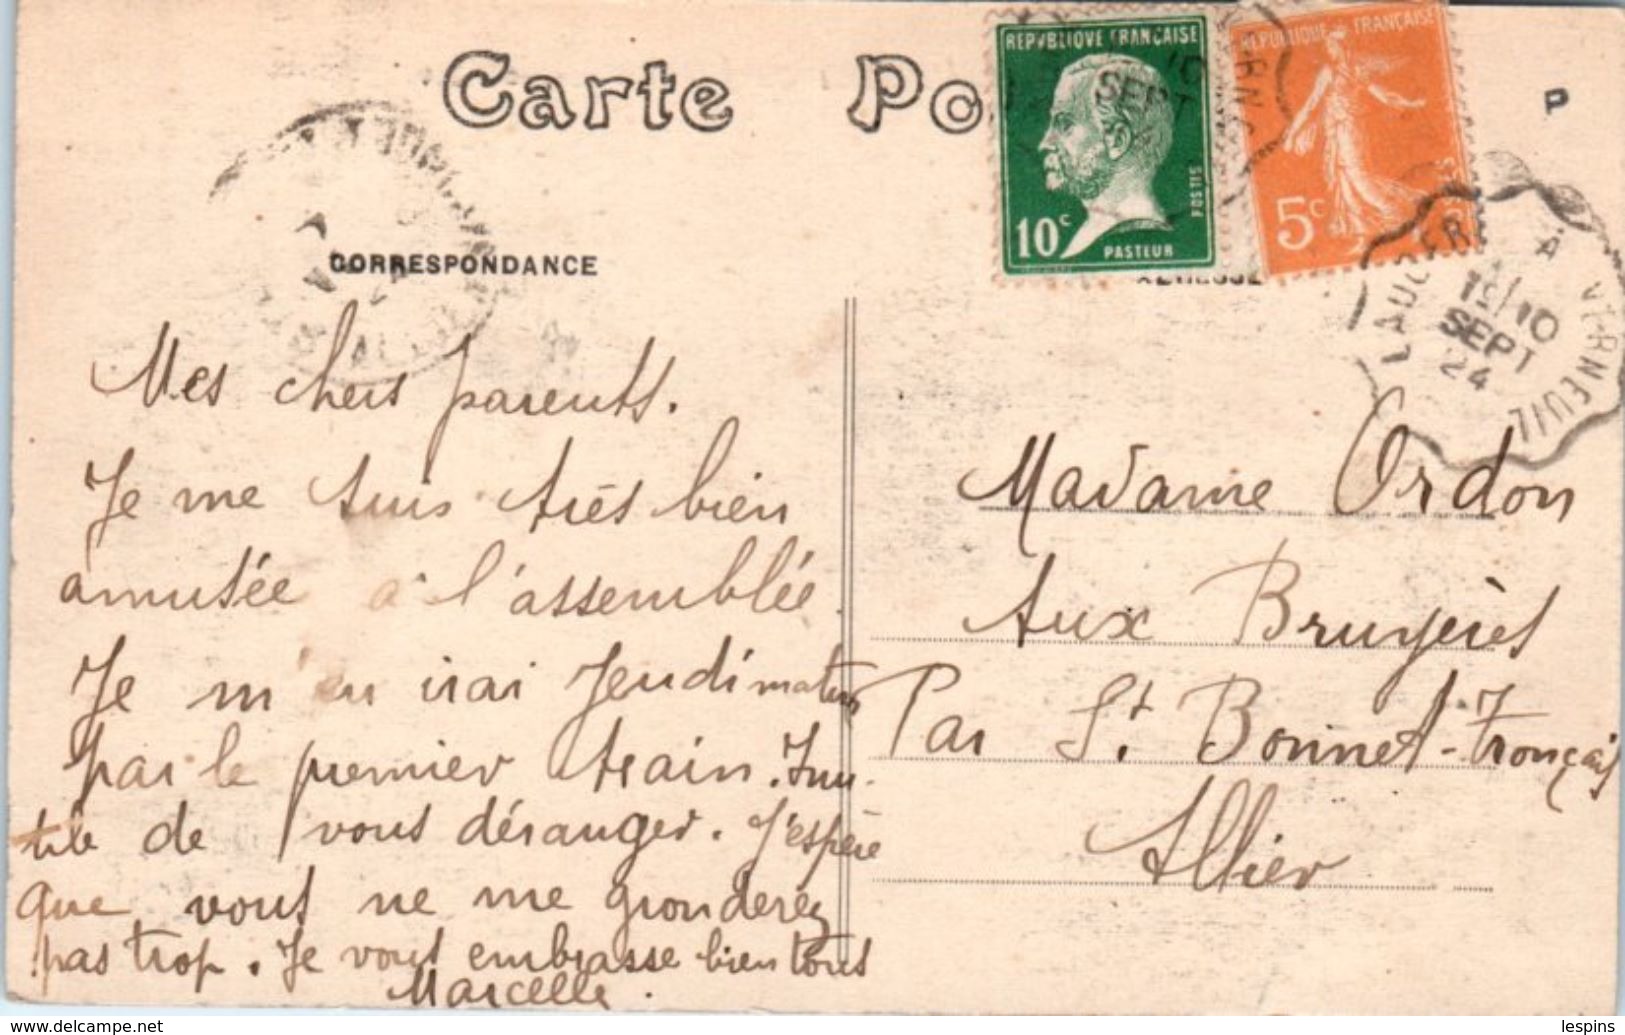 Carte Po
P
REPVBLIQVE FRANÇAISE
10c
POSTES
PASTEUR
REPUBLIQUE FRANÇAISE
5c
10
SEPT
A VERNEUIL
10
SEPT
24
CORRESPONDANCE
Mes chers parents.
Je me suis très bien
amusée à l'assemblée.
Je m'en irai Jeudi matin
par le premier train. Inu-
tile de vous déranger. J'espère
que vous ne me gronderez
pas trop. Je vous embrasse bien tous
Marcelle.
Madame Ordon
Aux Bruyères
Par St. Bonnet-Tronçais
Allier
www.delcampe.net
lespins